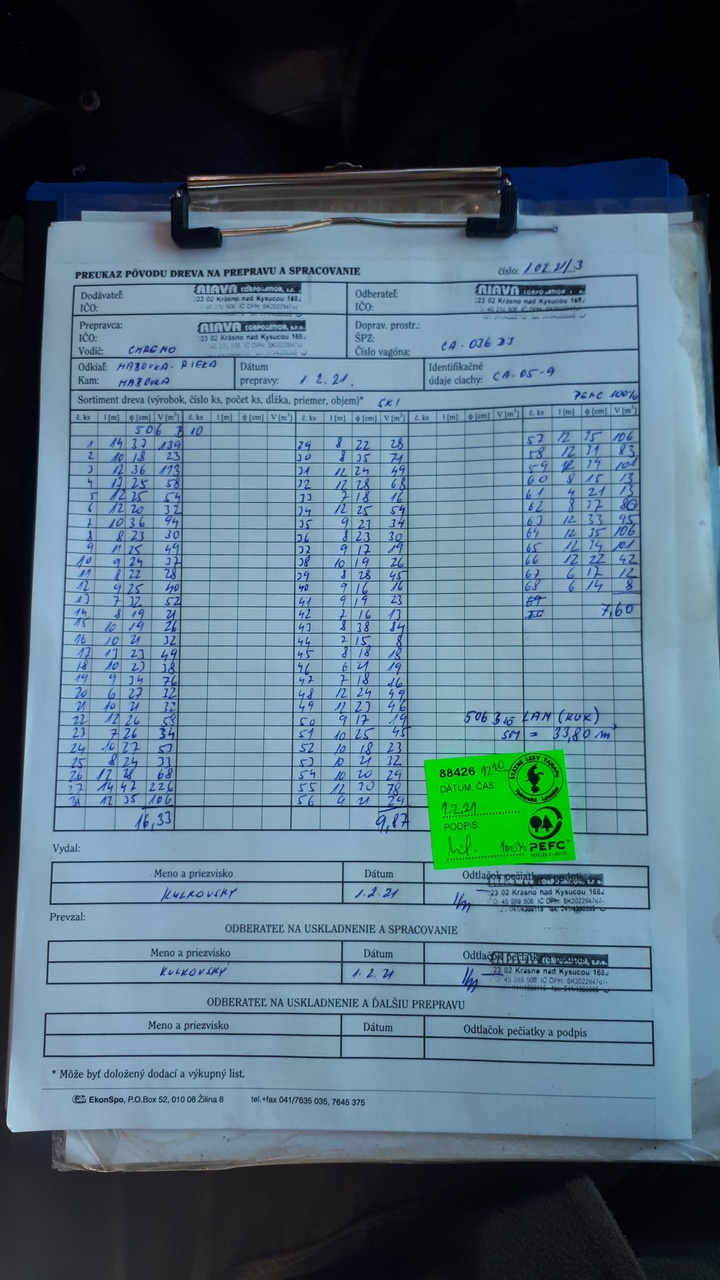 PREUKAZ PÔVODU DREVA NA PREPRAVU A SPRACOVANIE
číslo: 1.02.21/3
Dodávateľ: RIAVA CORPORATION, s.r.o.
23 02 Krásno nad Kysucou 168
IČO:
Odberateľ: RIAVA CORPORATION, s.r.o.
23 02 Krásno nad Kysucou 1682
IČO:
Prepravca: RIAVA CORPORATION, s.r.o.
IČO: 23 02 Krásno nad Kysucou 1682
Vodič:
Doprav. prostr.:
ŠPZ: CA-036 DJ
Číslo vagóna:
Odkiaľ:
Kam:
Dátum
prepravy: 1.2.21.
Identifikačné
údaje ciachy: CA-05-9
Sortiment dreva (výrobok, číslo ks, počet ks, dĺžka, priemer, objem)* SK1 PEFC 100%
č. ks l [m] ϕ [cm] V [m³] č. ks l [m] ϕ [cm] V [m³] č. ks l [m] ϕ [cm] V [m³] č. ks l [m] ϕ [cm] V [m³] č. ks l [m] ϕ [cm] V [m³]
506 B 10
1 14 37 139
2 10 18 23
3 12 36 113
4 13 25 58
5 12 25 54
6 12 20 32
7 10 36 94
8 8 23 30
9 11 25 49
10 9 24 37
11 8 22 28
12 9 25 40
13 7 32 52
14 8 19 21
15 10 19 26
16 10 21 32
17 13 23 49
18 10 23 38
19 9 34 76
20 6 27 32
21 10 21 32
22 12 26 59
23 7 26 34
24 27 53
25 8 24 33
26 13 28 68
27 14 47 226
28 12 35 106
16,33
29 8 22 28
30 8 35 71
31 12 24 49
32 12 28 68
33 7 18 16
34 12 25 54
35 9 23 34
36 8 23 30
37 9 17 19
38 10 19 26
39 8 28 45
40 9 16 16
41 9 19 23
42 7 16 13
43 8 38 84
44 7 15 8
45 8 18 18
46 6 21 19
47 7 18 16
48 12 24 49
49 11 23 46
50 9 17 19
51 10 25 45
52 10 18 23
53 10 21 32
54 10 20 29
55 12 30 78
56 9 21 29
9,87
57 12 35 106
58 12 31 83
59 12 34 101
60 8 15 13
61 4 21 13
62 8 37 80
63 12 33 95
64 12 35 106
65 12 34 101
66 12 22 42
67 6 17 12
68 6 14 8
69
70
7,60
506 B 10 LAN (KUK)
SM = 33,80 m³
88426 1210
DÁTUM, ČAS:
1.2.21
PODPIS
100% PEFC
ŠTÁTNE LESY TANAPU
Vydal:
Meno a priezvisko Dátum Odtlačok pečiatky a podpis
KULKOVSKÝ 1.2.21
23 02 Krásno nad Kysucou 1682
Prevzal:
ODBERATEĽ NA USKLADNENIE A SPRACOVANIE
Meno a priezvisko Dátum Odtlačok pečiatky a podpis
KULKOVSKÝ 1.2.21
23 02 Krásno nad Kysucou 1682
ODBERATEĽ NA USKLADNENIE A ĎALŠIU PREPRAVU
Meno a priezvisko Dátum Odtlačok pečiatky a podpis
* Môže byť doložený dodací a výkupný list.
EkonSpo, P.O.Box 52, 010 08 Žilina 8 tel.+fax 041/7635 035, 7645 375